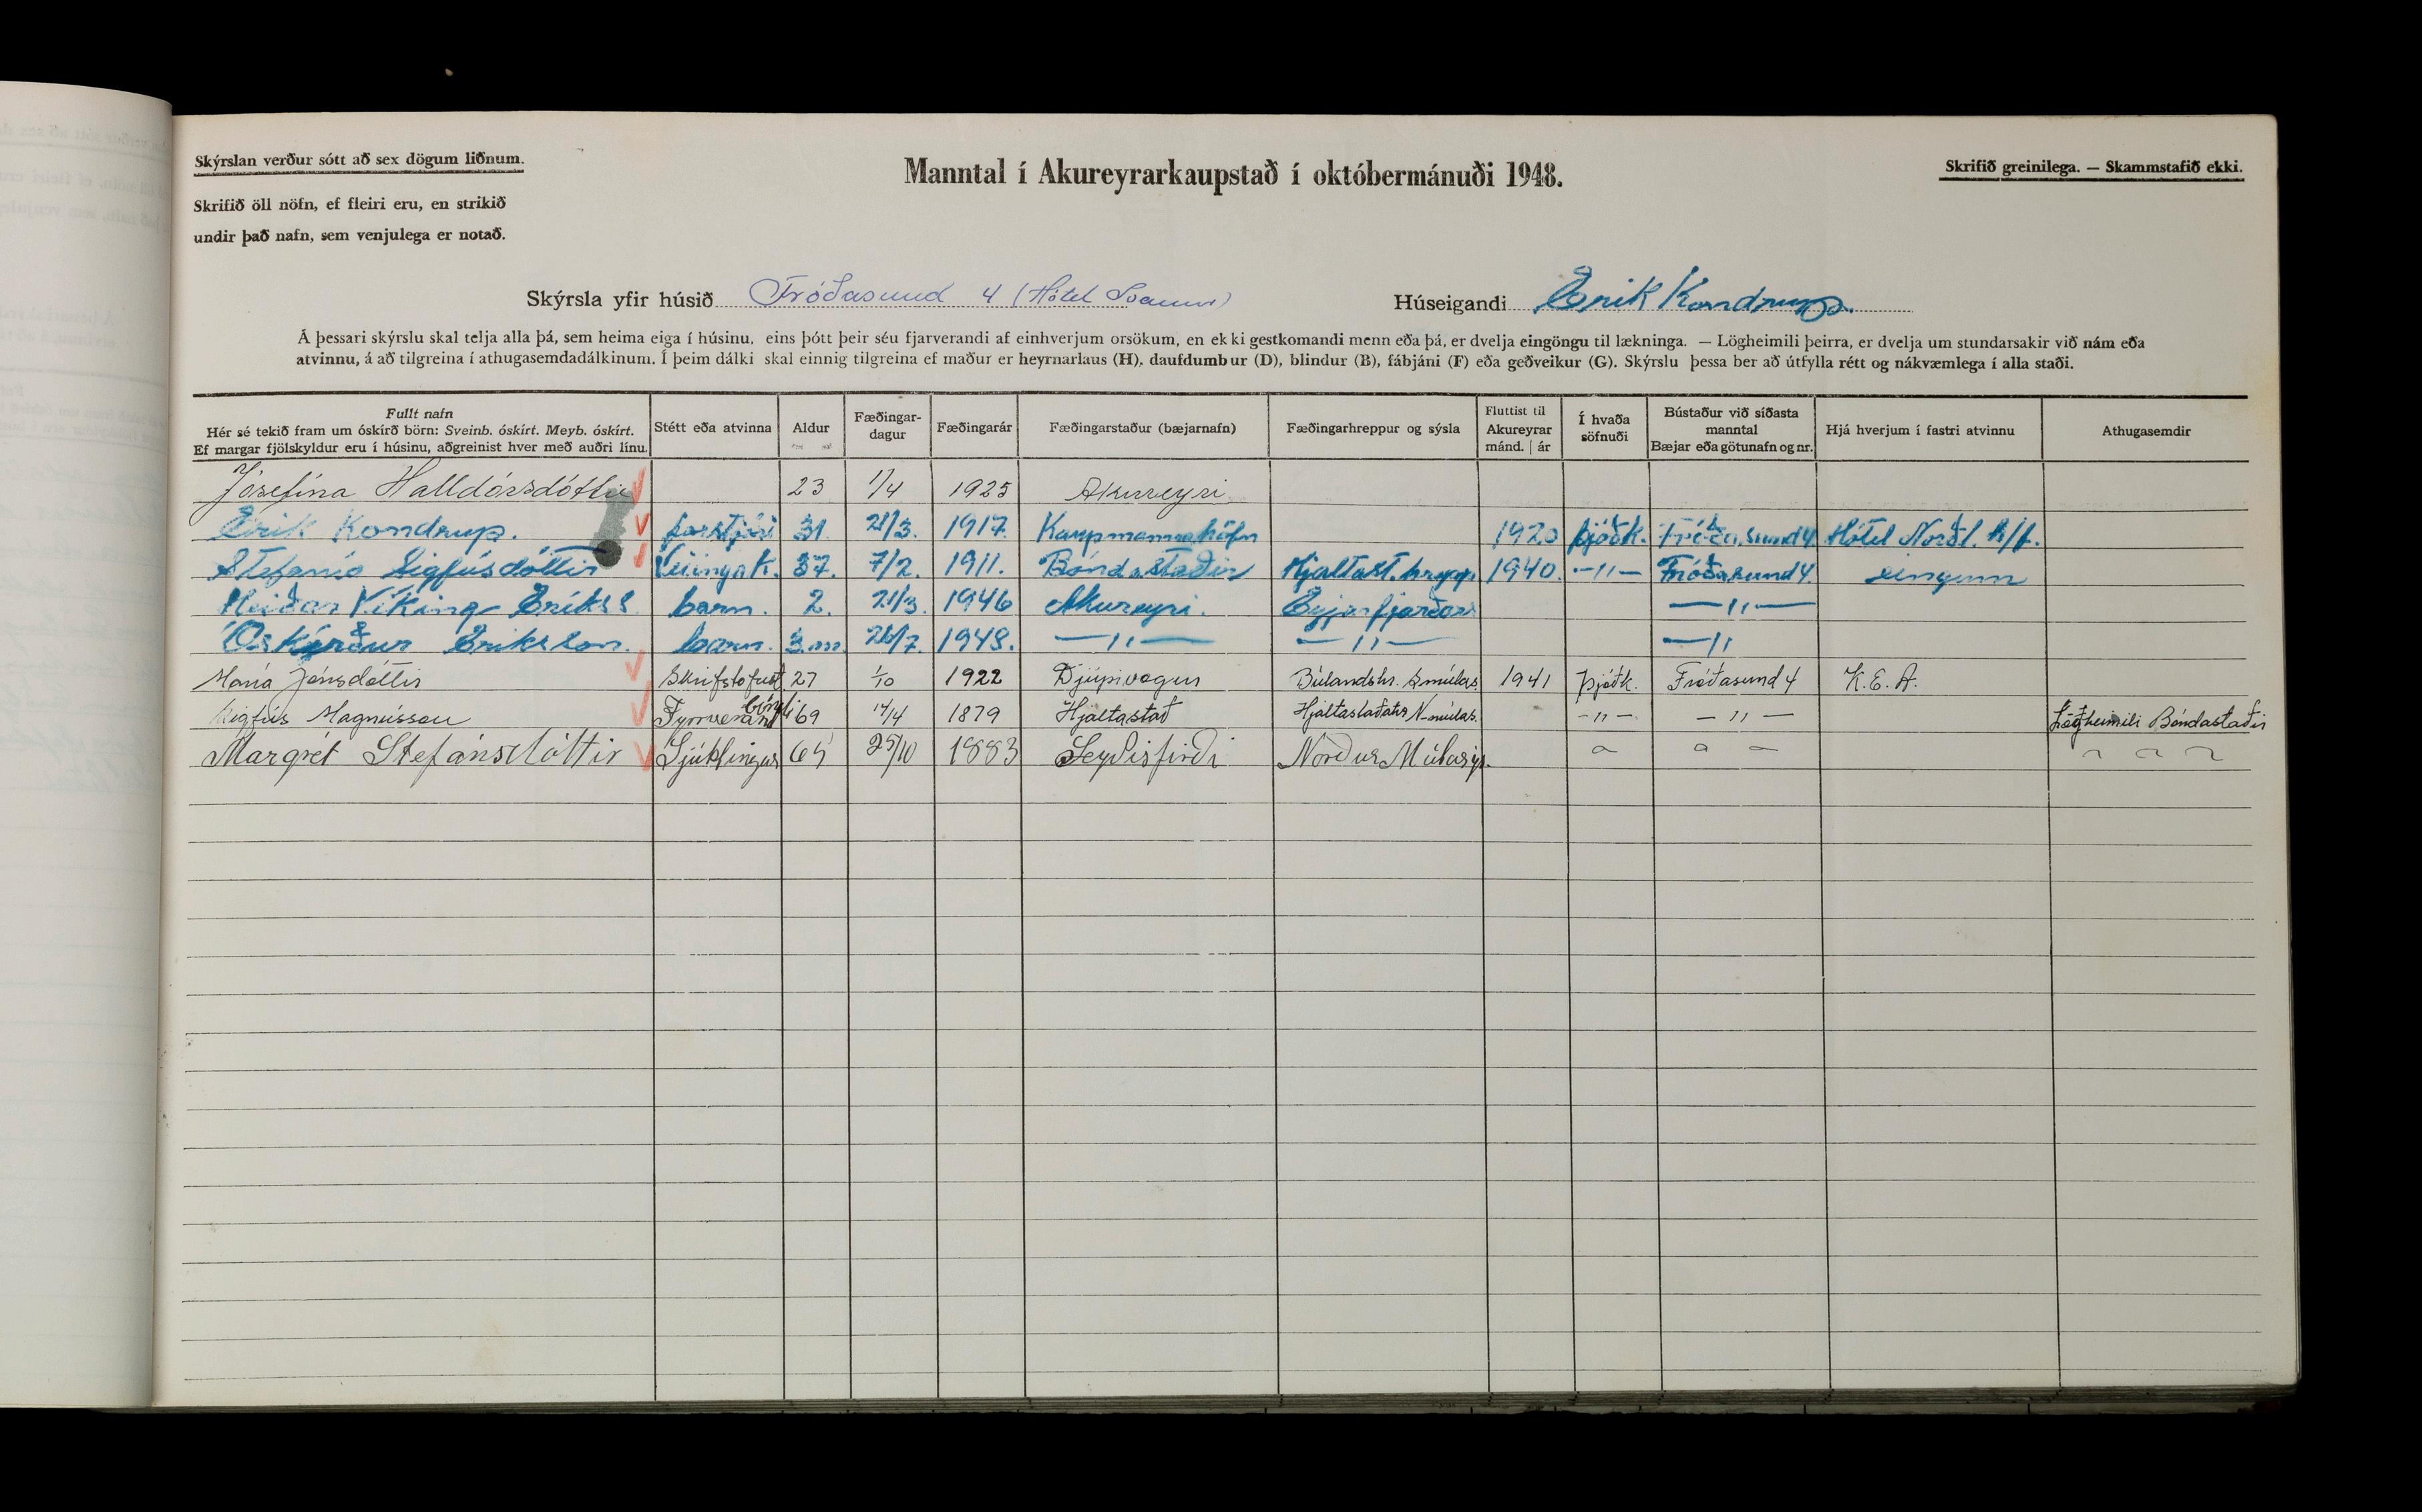 Skýrslan verður sótt að sex dögum liðnum.
Manntal í Akureyrarkaupstað í októbermánuði 1948.
Skrifið greinilega. — Skammstafið ekki.
Skrifið öll nöfn, ef fleiri eru, en strikið
undir það nafn, sem venjulega er notað.
Skýrsla yfir húsið Fróðasund 4 (Hótel Svanur)
Húseigandi Erik Kondrup.
Á þessari skýrslu skal telja alla þá, sem heima eiga í húsinu, eins þótt þeir séu fjarverandi af einhverjum orsökum, en ekki gestkomandi menn eða þá, er dvelja eingöngu til lækninga. — Lögheimili þeirra, er dvelja um stundarsakir við nám eða
atvinnu, á að tilgreina í athugasemdadálkinum. Í þeim dálki skal einnig tilgreina ef maður er heyrnarlaus (H), daufdumbur (D), blindur (B), fábjáni (F) eða geðveikur (G). Skýrslu þessa ber að útfylla rétt og nákvæmlega í alla staði.
Fullt nafn
Hér sé tekið fram um óskírð börn: Sveinb. óskírt. Meyb. óskírt.
Ef margar fjölskyldur eru í húsinu, aðgreinist hver með auðri línu.
Stétt eða atvinna
Aldur
Fæðingar-
dagur
Fæðingarár
Fæðingarstaður (bæjarnafn)
Fæðingarhreppur og sýsla
Fluttist til
Akureyrar
mánd. | ár
Í hvaða
söfnuði
Bústaður við síðasta
manntal
Bæjar eða götunafn og nr.
Hjá hverjum í fastri atvinnu
Athugasemdir
Jósefína Halldórsdóttir 23 1/4 1925 Akureyri
Erik Kondrup. forstjóri 31. 21/3. 1917. Kaupmannahöfn 1920 þjóðk. Fróðasund 4 Hótel Norðl. h/f.
Stefanía Sigfúsdóttir 37. 7/2. 1911. Bóndastaðir Hjaltast. hrepp 1940. —"— Fróðasund 4. eingum
Heiðar Víking Eríkss barn. 2. 21/3. 1946 Akureyri. Eyjarfjarðars —"—
Óskýrður Erikson. barn. 3.m. 26/7. 1948. —"— —"— —"
María Jónsdóttir Skrifstofust. 27 1/10 1922 Djúpivogur Búlandshr. S-múlas. 1941 Þjóðk. Fróðasund 4 K.E.A.
Sigfús Magnússon Fyrrverand bóndi 69 14/4 1879 Hjaltastað Hjaltastaðahr N-múlas. —"— —"— Lögheimili Bóndastaðir
Margrét Stefánsdóttir Sjúklingur 65 25/10 1883 Seyðisfirði Norður Múlasýs.